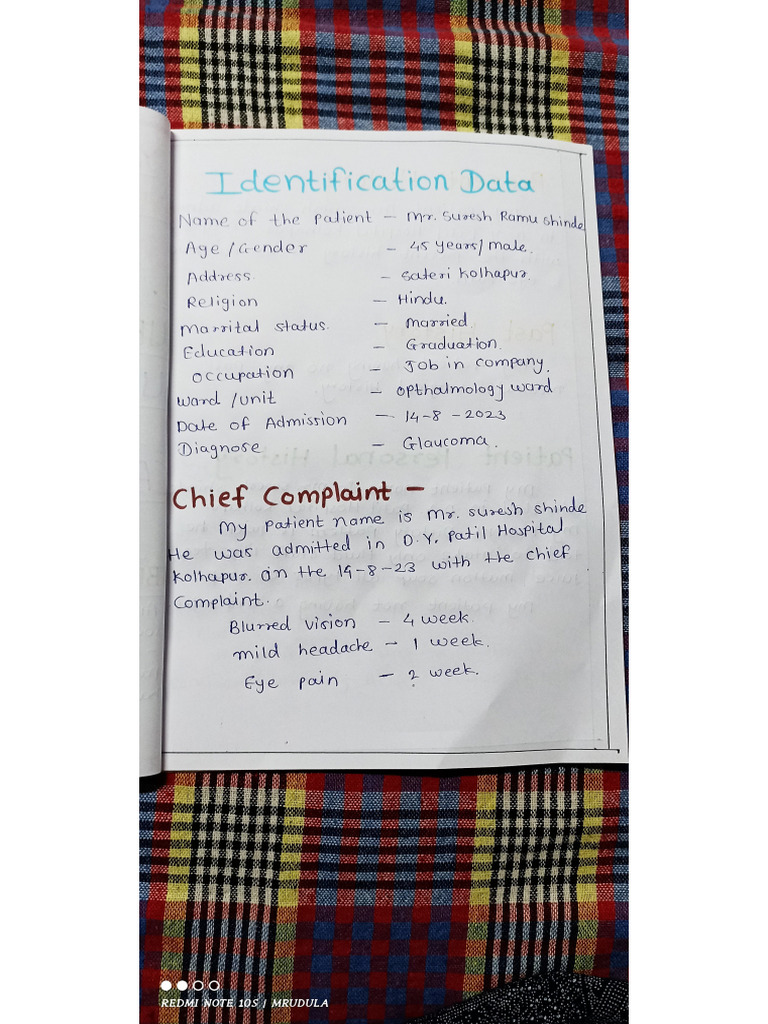 Identification Data
Name of the patient - Mr. Suresh Ramu Shinde
Age /Gender - 45 years/male.
Address - Sateri Kolhapur.
Religion - Hindu.
Marrital status - Married
Education - Graduation.
Occupation - Job in company.
Ward /unit - Opthalmology ward
Date of Admission - 14-8-2023
Diagnose - Glaucoma.
Chief Complaint -
My patient name is Mr. Suresh Shinde
He was admitted in D.Y. Patil Hospital
Kolhapur. on the 14-8-23 with the chief
Complaint.
Blurred vision - 4 week.
mild headache - 1 week.
Eye pain - 2 week.
REDMI NOTE 10S | MRUDULA